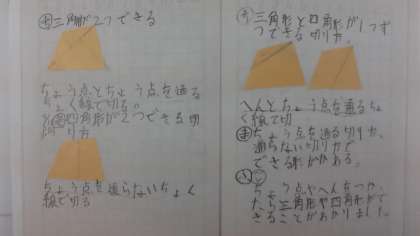 ㋖三角形が2つできる
ちょう点とちょう点を通る
ちょく線で切る。
四角形が2つできる切
り方
ちょう点を通らないちょく
線で切る
三角形と四角形が1つず
つできる切り方。
へんとちょう点を通るちょ
く線で切
㋮ちょう点を通る切り方、
通らない切り方で
できる形がかわる。
ちょう点やへんをつか
三角形や四角形がで
きることがわかりました。